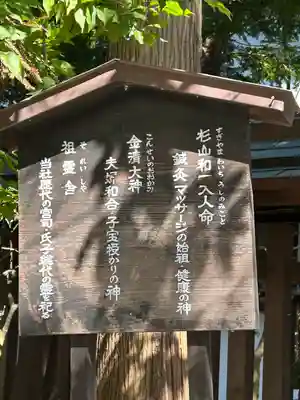 すぎやまわいちうしのみこと
杉山和一大人命
鍼灸マッサージの始祖 健康の神
こんせいのおおかみ
金精大神
夫婦和合 子宝授かりの神
それいしゃ
祖霊舎
当社歴代の宮司、氏子歴代の霊を祀る